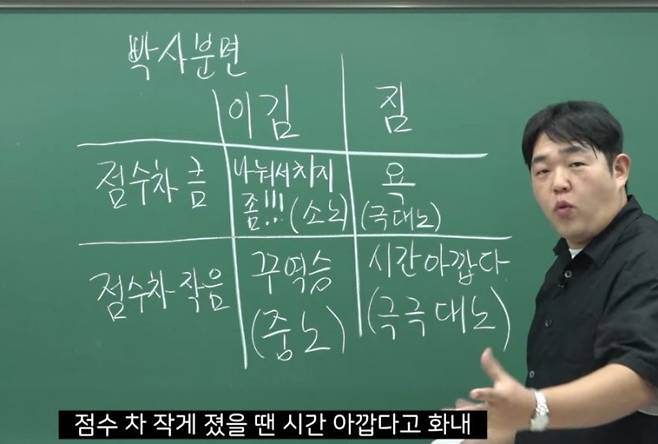 빡사분면
이김
짐
점수차 큼
나눠서치지
좀!!! (소노)
욕
(극대노)
점수차 작음
꾸역승
(중노)
시간아깝다
(극극대노)
점수 차 작게 졌을 땐 시간 아깝다고 화내